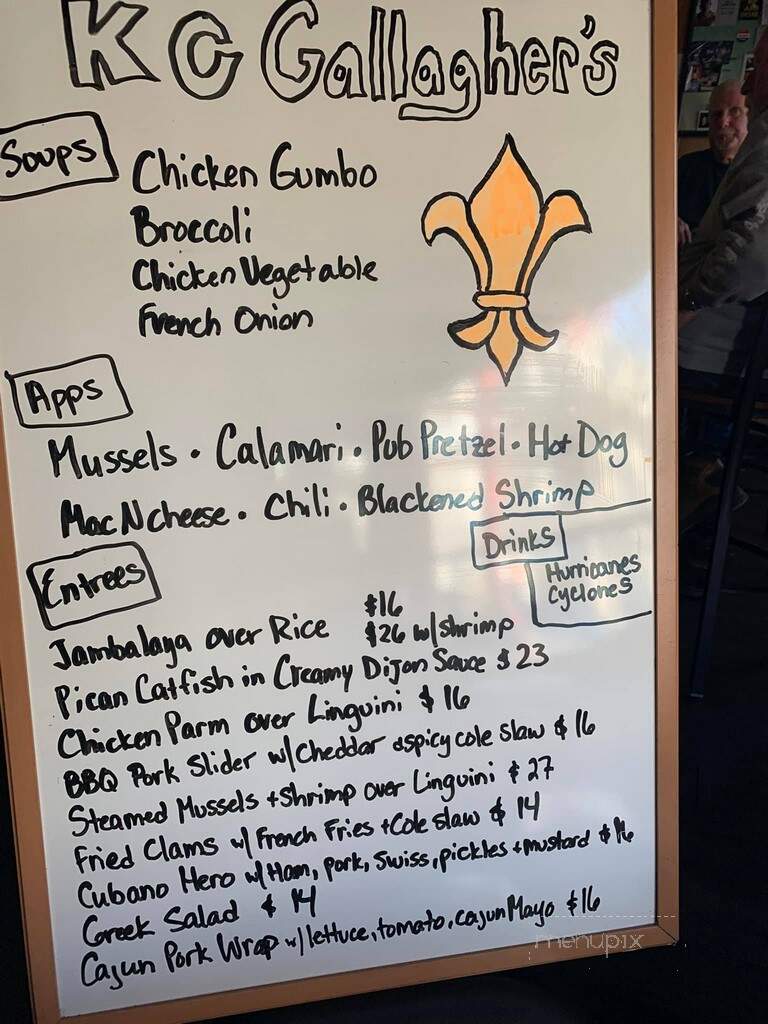 KC Gallagher's
Soups
Chicken Gumbo
Broccoli
Chicken Vegetable
French Onion
Apps
Mussels • Calamari • Pub Pretzel • Hot Dog
Mac N cheese • Chili • Blackened Shrimp
Drinks
Hurricanes
Cyclones
Entrees
Jambalaya over Rice $16
$26 w/shrimp
Pican Catfish in Creamy Dijon Sauce $23
Chicken Parm over Linguini $16
BBQ Pork Slider w/cheddar +spicy cole slaw $16
Steamed Mussels +Shrimp over Linguini $27
Fried Clams w/French Fries +Cole slaw $14
Cubano Hero w/Ham, pork, swiss, pickles +mustard $16
Greek Salad $14
Cajun Pork Wrap w/lettuce, tomato, cajun Mayo $16
menupix